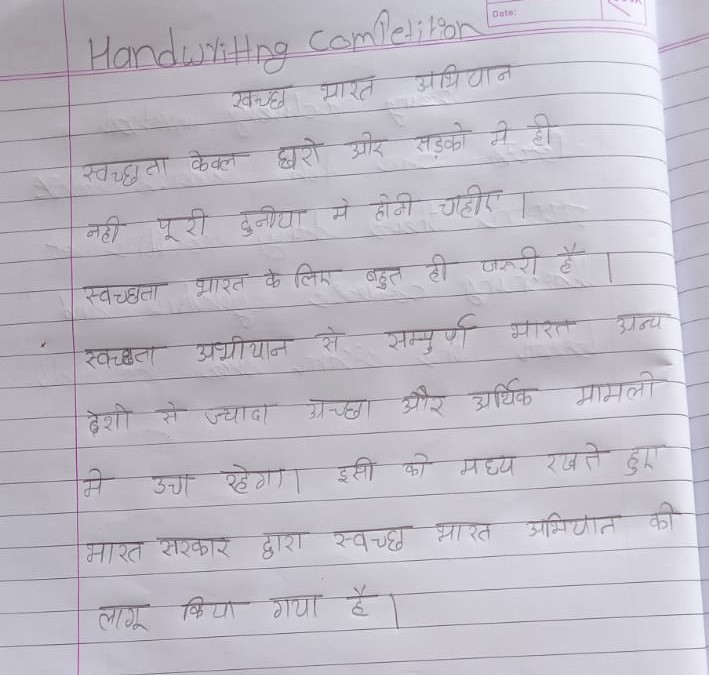 Date:
Handwritting Competition
स्वच्छ भारत अभियान
स्वच्छता केवल घरो और सड़को मे ही
नही पूरी दुनीया मे होनी चाहीए ।
स्वच्छता भारत के लिए बहुत ही जरुरी है ।
स्वच्छता अभीयान से सम्पुर्ण भारत अन्य
देशो से ज्यादा अच्छा और अर्थिक मामलो
मे उचा रहेगा। इसी को मध्य रखते हुए
भारत सरकार द्वारा स्वच्छ भारत अभियान की
लागू किया गया है |